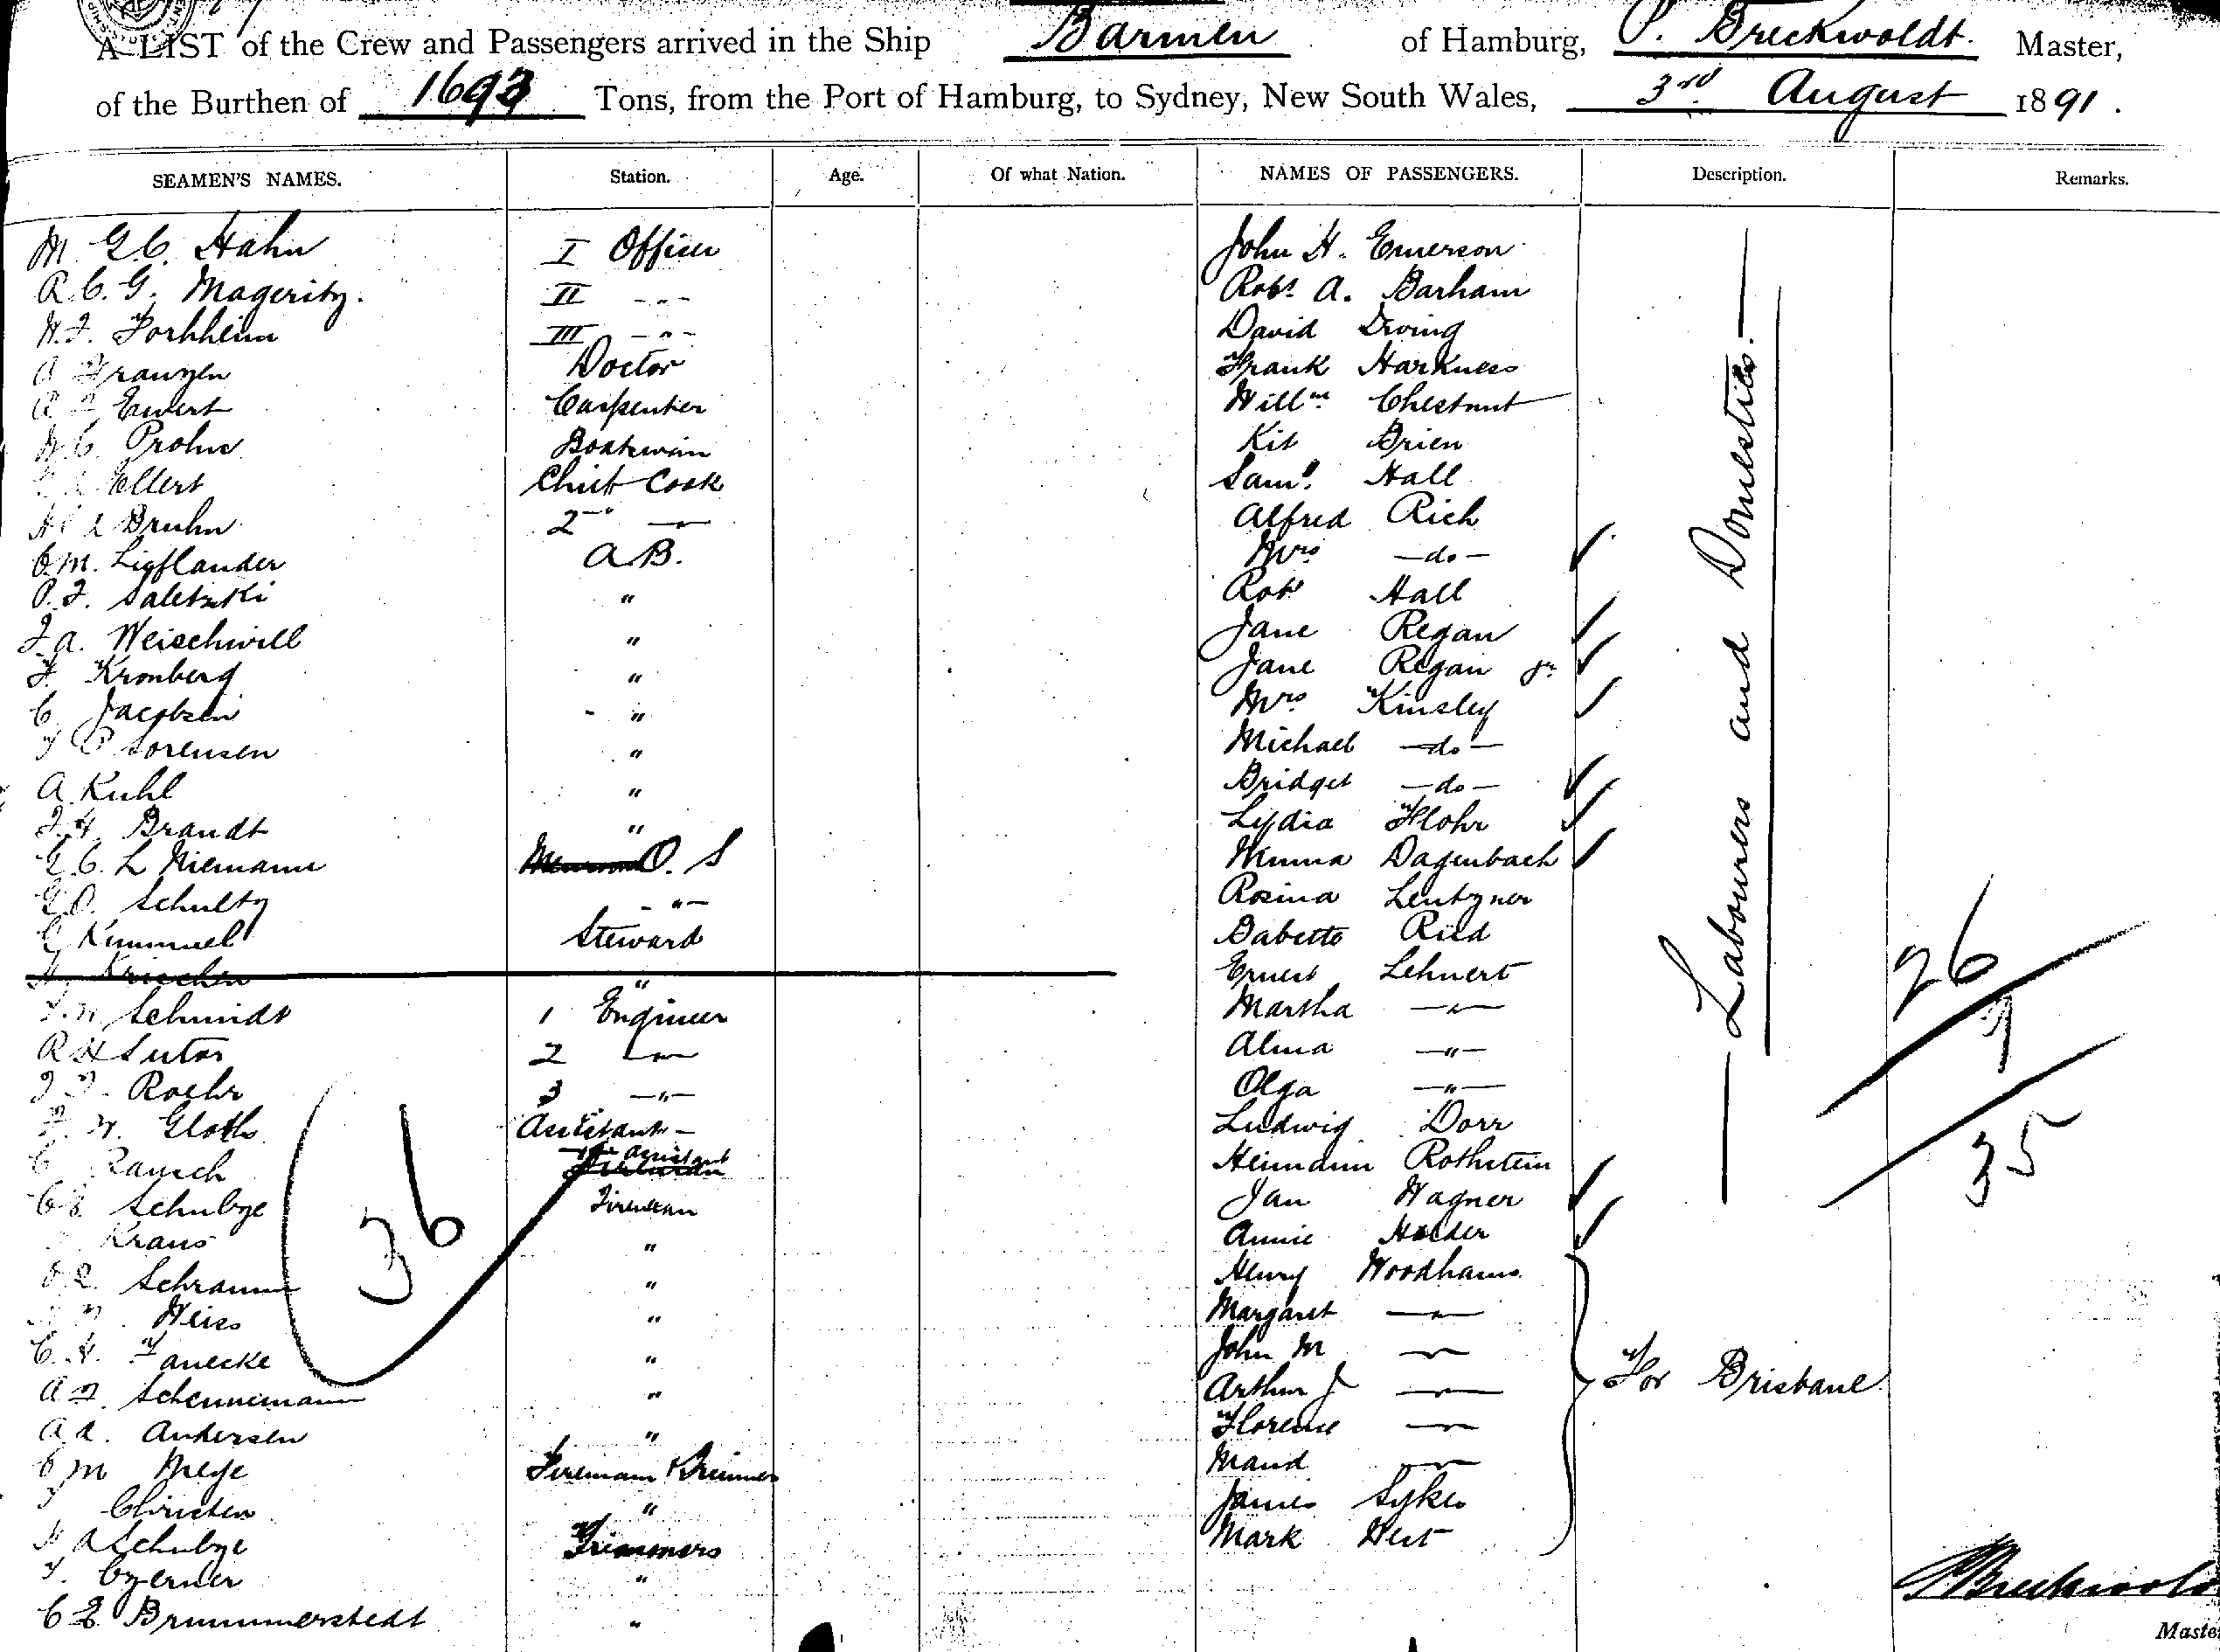 A LIST of the Crew and Passengers arrived in the Ship Barmen of Hamburg, P. Breckwoldt. Master,
of the Burthen of 1693 Tons, from the Port of Hamburg, to Sydney, New South Wales, 3rd August 1891.
SEAMEN'S NAMES. Station. Age. Of what Nation. NAMES OF PASSENGERS. Description. Remarks.
M. G C. Hahn I Officer John H. Emerson
R. C. G. Mageritz. II -"- Robt. A. Barham
III -"- David Irving
A Franzen Doctor Frank Harkness
Ewert Carpenter Willm. Chestnut
Prohn Boatswain Kit Brien
Ellert Chief Cook Saml. Hall
Bruhn 2 -"- Alfred Rich
C. M. Ligflander A.B. Mrs -do-
P. F. Saletzki " Robt Hall
F. A. Weischwill " Jane Regan
F. Kronberg " Jane Regan jr.
C. Jacobsen " Mrs Kinsley
Sorensen " Michael -do-
A Kuhl " Bridget -do-
Brandt " Lydia Flohr
G. C. L Niemann O. S Minna Dagenbach
Schultz -"- Rosina Lentzner
Kummel Steward Babette Ried
" Ernest Lehnert
Schmidt 1 Engineer Martha -"-
R H Sutor 2 -"- Alma -"-
Roehr 3 -"- Olga -"-
Gloth Assistant - Ludwig Dorr
Rausch Assistant Heimann Rothstein
Schulze Fireman Jan Wagner
Kraus " Annie Holder
Schramm " Henry Woodhams
Weiss " Margaret -"-
C. H. " John M -"-
Schennemann " Arthur J -"-
A. A. Andersen " Florence -"-
C M Meye Fireman Trimmer Maud -"-
Christen " James Sykes
A Schulze Trimmers Mark
Czerner "
C E Brummerstedt "
36
— Labourers and Domestics. —
For Brisbane
26
9
35
P Breckwoldt
Master